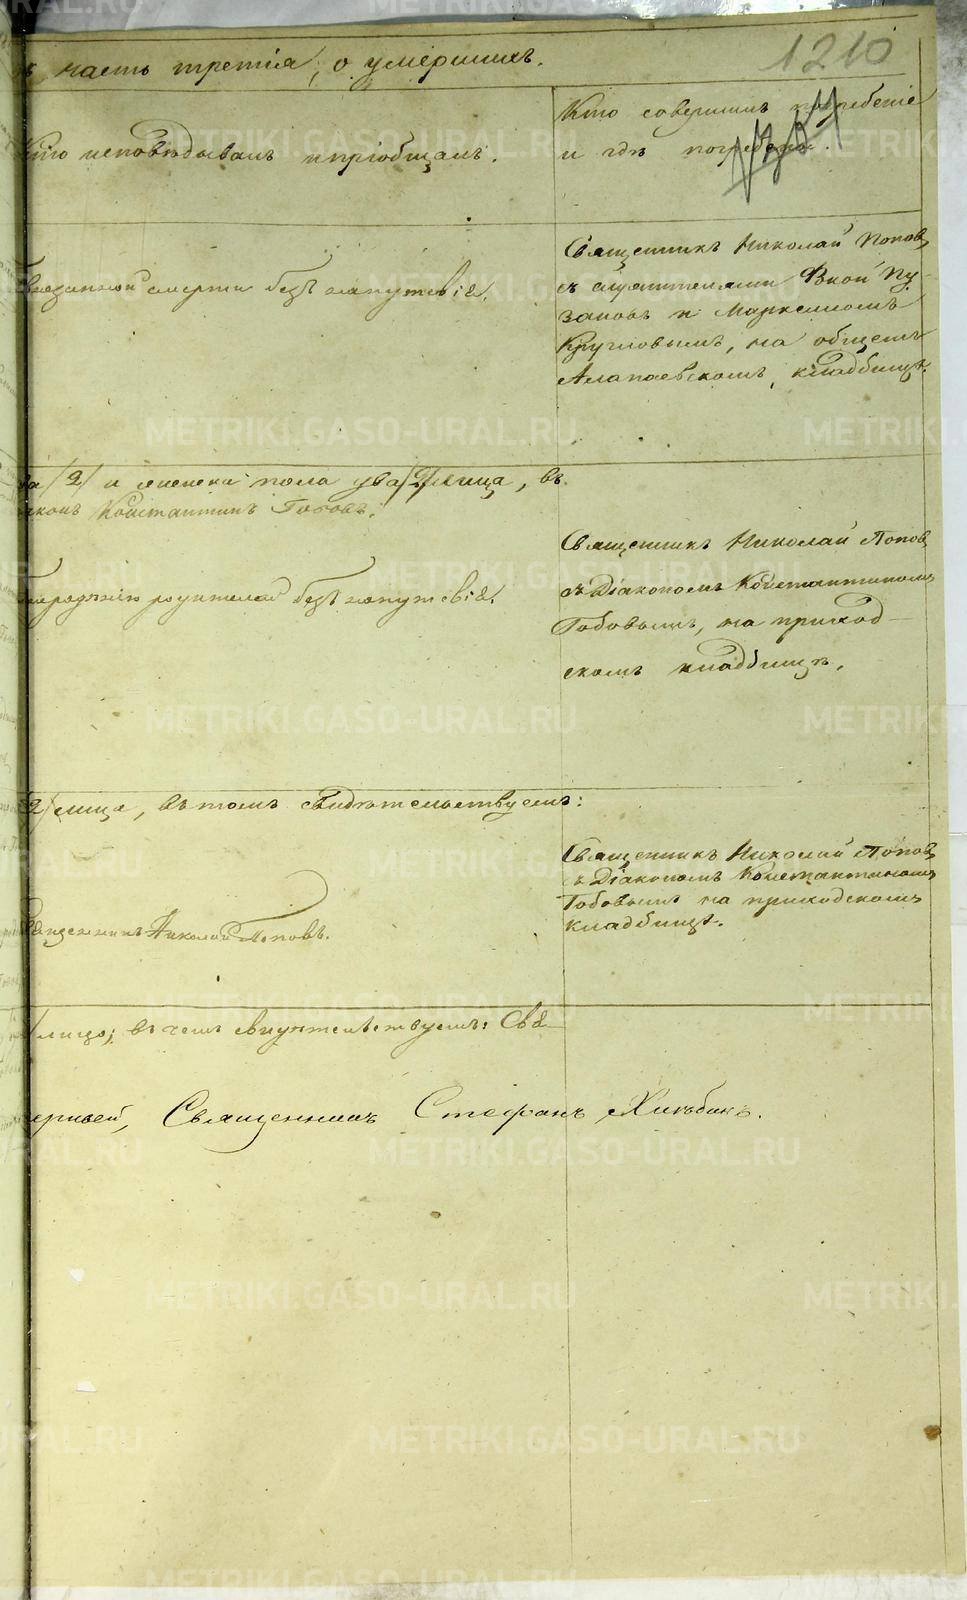 часть третія, о умершихъ.
1210
Кто исповѣдывалъ и пріобщалъ.
Кто совершилъ погребеніе
и гдѣ погребены.
смерти безъ напутствія.
Священникъ Николай Поповъ
съ Фокой Пу-
зановъ и
Кругловымъ, на общемъ
Алапаевскомъ кладбищѣ.
/2/ и женска пола два /2/ лица, въ
Константинъ
безъ напутствія.
Священникъ Николай Поповъ
съ Діакономъ Константиномъ
на приход-
скомъ кладбищѣ.
2/ лица, въ томъ свидѣтельствуемъ:
Священникъ Николай Поповъ.
Священникъ Николай Поповъ
съ Діакономъ Константиномъ
на приходскомъ
кладбищѣ.
лицо; въ чемъ свидѣтельствуемъ: Свя-
Священникъ Стефанъ
METRIKI.GASO-URAL.RU